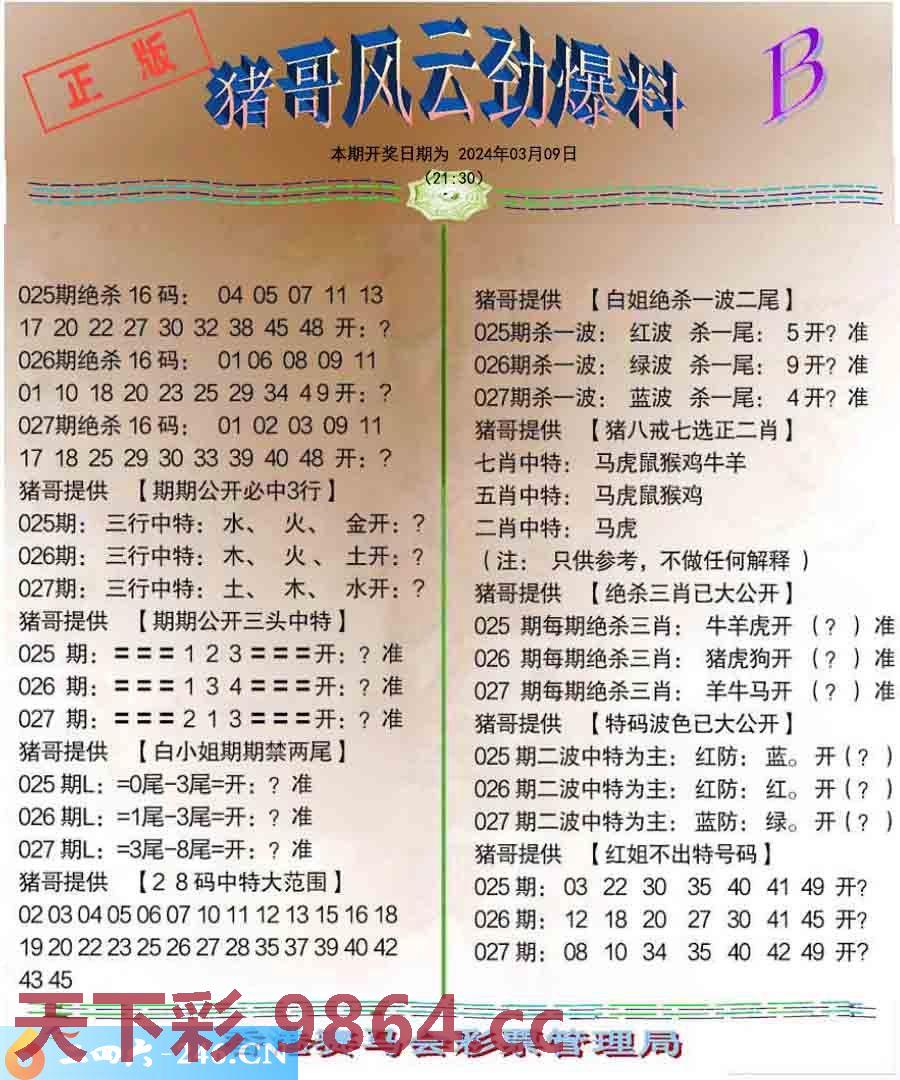 正版
猪哥风云劲爆料
B
本期开奖日期为 2024年03月09日
(21:30)
025期绝杀16码： 04 05 07 11 13
17 20 22 27 30 32 38 45 48 开：?
026期绝杀16码： 01 06 08 09 11
01 10 18 20 23 25 29 34 49 开：?
027期绝杀16码： 01 02 03 09 11
17 18 25 29 30 33 39 40 48 开：?
猪哥提供 【期期公开必中3行】
025期：三行中特：水、 火、 金开：?
026期：三行中特：木、 火、 土开：?
027期：三行中特：土、 木、 水开：?
猪哥提供 【期期公开三头中特】
025 期：===1 2 3===开：? 准
026 期：===1 3 4===开：? 准
027 期：===2 1 3===开：? 准
猪哥提供 【白小姐期期禁两尾】
025期L：=0尾-3尾=开：? 准
026期L：=1尾-3尾=开：? 准
027期L：=3尾-8尾=开：? 准
猪哥提供 【28码中特大范围】
02 03 04 05 06 07 10 11 12 13 15 16 18
19 20 22 23 25 26 27 28 35 37 39 40 42
43 45
猪哥提供 【白姐绝杀一波二尾】
025期杀一波： 红波 杀一尾： 5开? 准
026期杀一波： 绿波 杀一尾： 9开? 准
027期杀一波： 蓝波 杀一尾： 4开? 准
猪哥提供 【猪八戒七选正二肖】
七肖中特： 马虎鼠猴鸡牛羊
五肖中特： 马虎鼠猴鸡
二肖中特： 马虎
（注： 只供参考，不做任何解释 ）
猪哥提供 【绝杀三肖已大公开】
025 期每期绝杀三肖： 牛羊虎开 （? ）准
026 期每期绝杀三肖： 猪虎狗开 （? ）准
027 期每期绝杀三肖： 羊牛马开 （? ）准
猪哥提供 【特码波色已大公开】
025期二波中特为主： 红防： 蓝。 开（? ）
026期二波中特为主： 红防： 红。 开（? ）
027期二波中特为主： 蓝防： 绿。 开（? ）
猪哥提供 【红姐不出特号码】
025期： 03 22 30 35 40 41 49 开?
026期： 12 18 20 27 30 41 45 开?
027期： 08 10 34 35 40 42 49 开?
天下彩 9864.cc
二四六-246.CN
赛马会彩票管理局